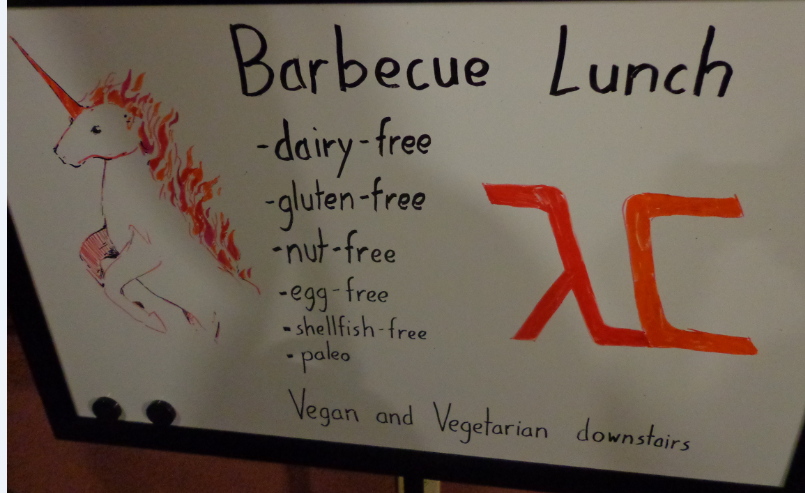 Barbecue Lunch
-dairy-free
-gluten-free
-nut-free
-egg-free
-shellfish-free
-paleo
λC
Vegan and Vegetarian downstairs